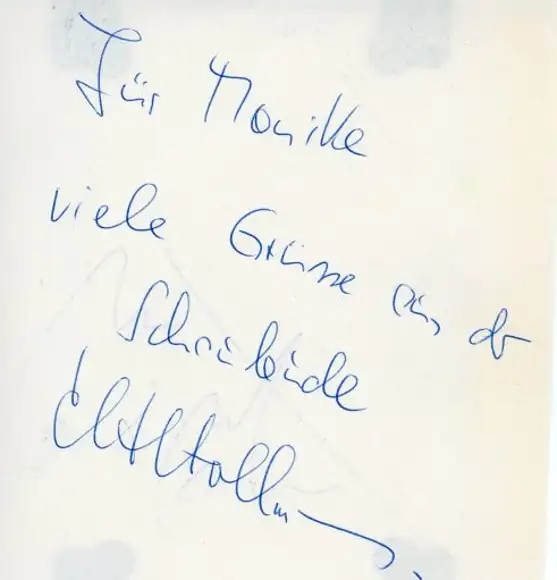 Für Monika
viele Grüsse aus der
Schaubude